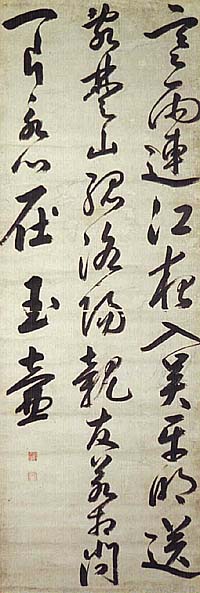 寒雨連江夜入吳平明送
客楚山孤洛陽親友若相問
一片氷心在玉壺